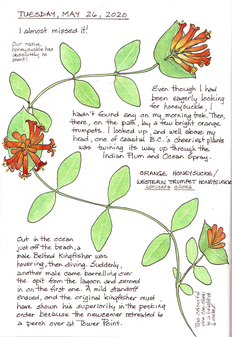 TUESDAY, MAY 26, 2020
I almost missed it!
Our native
honeysuckle has
absolutely no
scent!
Even though I had
been eagerly looking
for honeysuckle, I
hadn't found any on my morning trek. Then,
there, on the path, lay a few bright orange
trumpets. I looked up, and well above my
head, one of coastal B.C.'s cheeriest plants
was turning its way up through the
Indian Plum and Ocean Spray.
ORANGE HONEYSUCKLE/
WESTERN TRUMPET HONEYSUCKLE
Lonicera ciliosa
Out in the ocean
just off the beach, a
male Belted Kingfisher was
hovering, then diving. Suddenly,
another male came barrelling over
the spit from the lagoon and zeroed
in on the first one. A mild standoff
ensued, and the original kingfisher must
have shown his superiority in the pecking
order because the newcomer retreated to
a perch over at Tower Point.
This colourful
vine can climb
to a height of
6 meters!